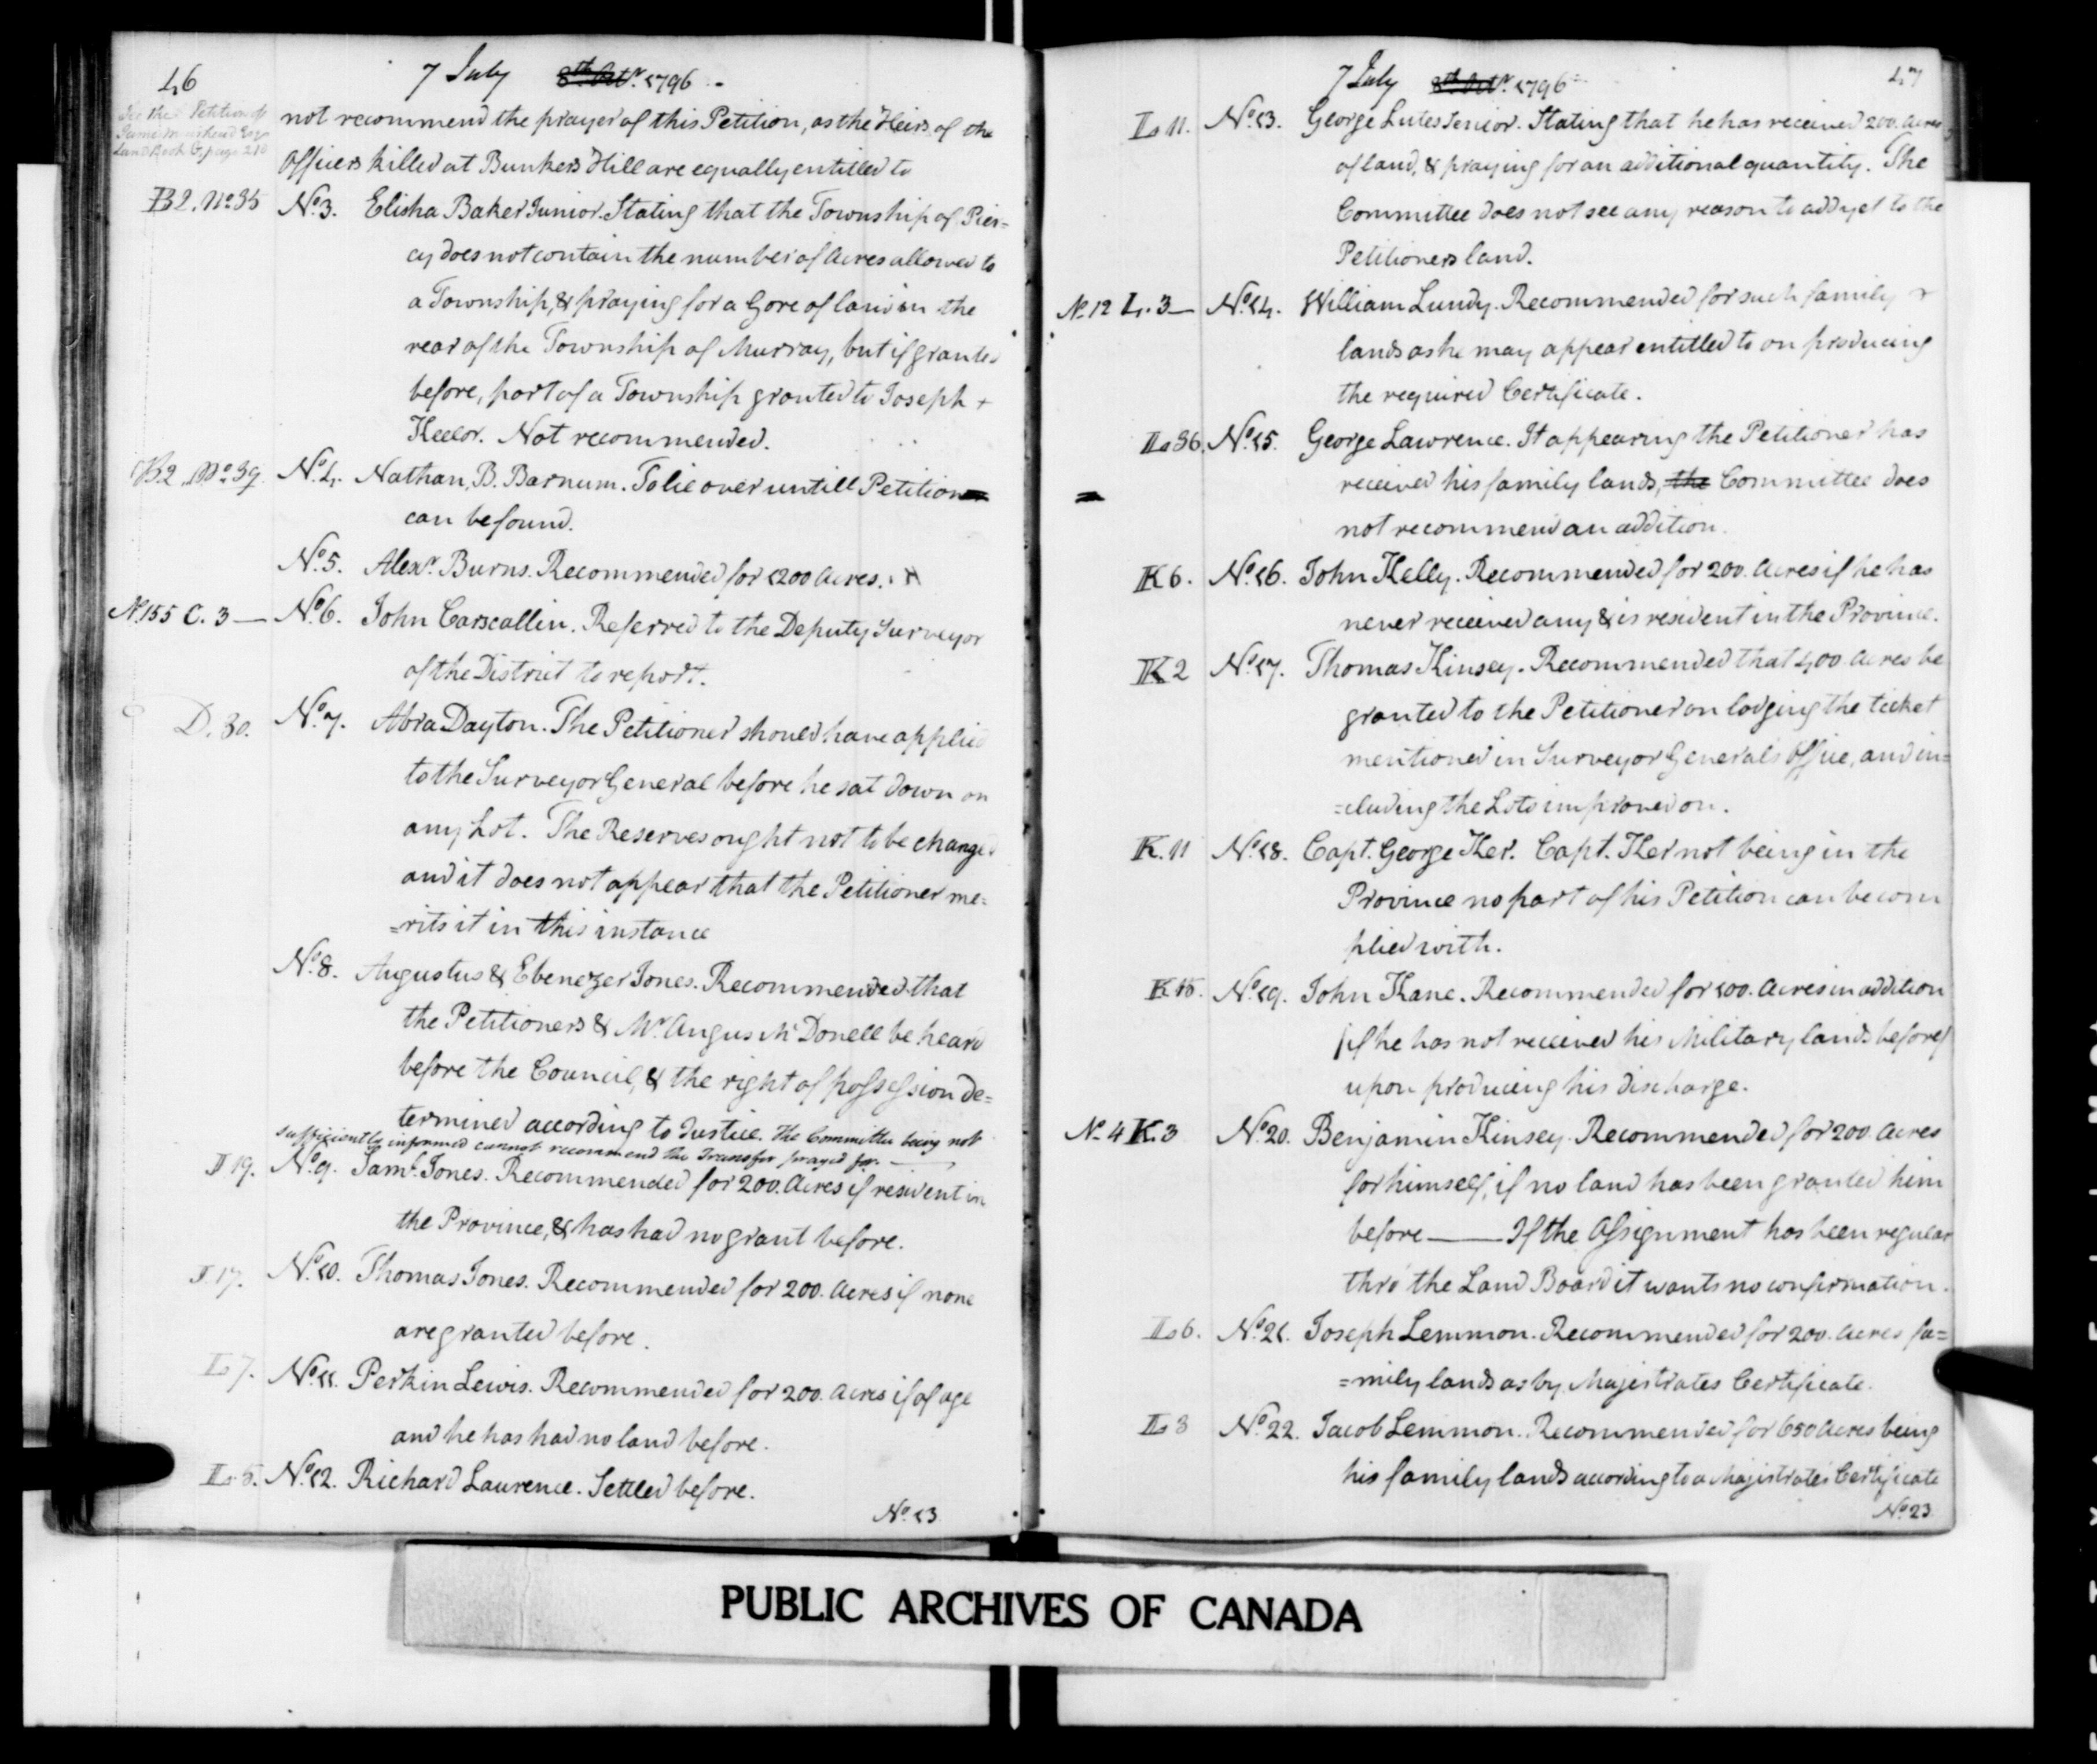 46
7 July 8th Octr. 1796.-
See the Petition of
James Muirhead Esqr
Land Book C, page 210
not recommend the prayer of this Petition, as the Heirs of the
Officers killed at Bunkers Hill are equally entitled to
B 2. No. 35 No. 3. Elisha Baker Junior. Stating that the Township of Pier=
cy does not contain the number of Acres allowed to
a Township, & praying for a Gore of land in the
rear of the Township of Murray, but if granted
before, part of a Township granted to Joseph +
Keelor. Not recommended.
B.2. No. 39. No. 4. Nathan, B. Barnum. To lie over untill Petition
can be found.
No. 5. Alexr. Burns. Recommended for 1200 Acres.
No. 155 C. 3 — No. 6. John Carscallin. Referred to the Deputy Surveyor
of the District to report.
D. 30. No. 7. Abra Dayton. The Petitioner should have applied
to the Surveyor General before he sat down on
any Lot. The Reserves ought not to be changed
and it does not appear that the Petitioner me=
=rits it in this instance
No. 8. Augustus & Ebenezer Jones. Recommended that
the Petitioners & Mr. Angus McDonell be heard
before the Council, & the right of possession de=
termined according to Justice. The Committee being not
sufficiently informed cannot recommend the Transfer prayed for.
I 19. No. 9. Saml. Jones. Recommended for 200. Acres if resident in
the Province, & has had no grant before.
I 17. No. 10. Thomas Jones. Recommended for 200. Acres if none
are granted before.
L 7. No. 11. Perkin Lewis. Recommended for 200. Acres if of age
and he has had no land before.
L. 5. No. 12. Richard Laurence. Settled before.
No. 13
47
7 July 8th Octr. 1796
L 11. No. 13. George Lutes Senior. Stating that he has received 200. Acres
of land, & praying for an additional quantity. The
Committee does not see any reason to add yet to the
Petitioners land.
No. 12 L. 3 — No. 14. William Lundy. Recommended for such family +
lands as he may appear entitled to on producing
the required Certificate.
L 36. No. 15. George Lawrence. It appearing the Petitioner has
received his family lands, the Committee does
not recommend an addition.
K 6. No. 16. John Kelly. Recommended for 200. Acres if he has
never received any & is resident in the Province.
K 2 No. 17. Thomas Kinsey. Recommended that 400 Acres be
granted to the Petitioner on lodging the ticket
mentioned in Surveyor General's Office, and in=
=cluding the Lots improved on.
K. 11 No. 18. Capt. George Ker. Capt. Ker not being in the
Province no part of his Petition can be com
plied with.
K 15. No. 19. John Kane. Recommended for 100. Acres in addition
(if he has not received his Military lands before)
upon producing his discharge.
No. 4 K. 3 No. 20. Benjamin Kinsey. Recommended for 200. Acres
for himself, if no land has been granted him
before —— If the Assignment has been regular
thro' the Land Board it wants no confirmation.
L 6. No. 21. Joseph Lemmon. Recommended for 200. Acres fa=
=mily lands as by Majistrates Certificate.
L 8 No. 22. Jacob Lemmon. Recommended for 650 Acres being
his family lands according to a Majistrate's Certificate
No. 23.
PUBLIC ARCHIVES OF CANADA